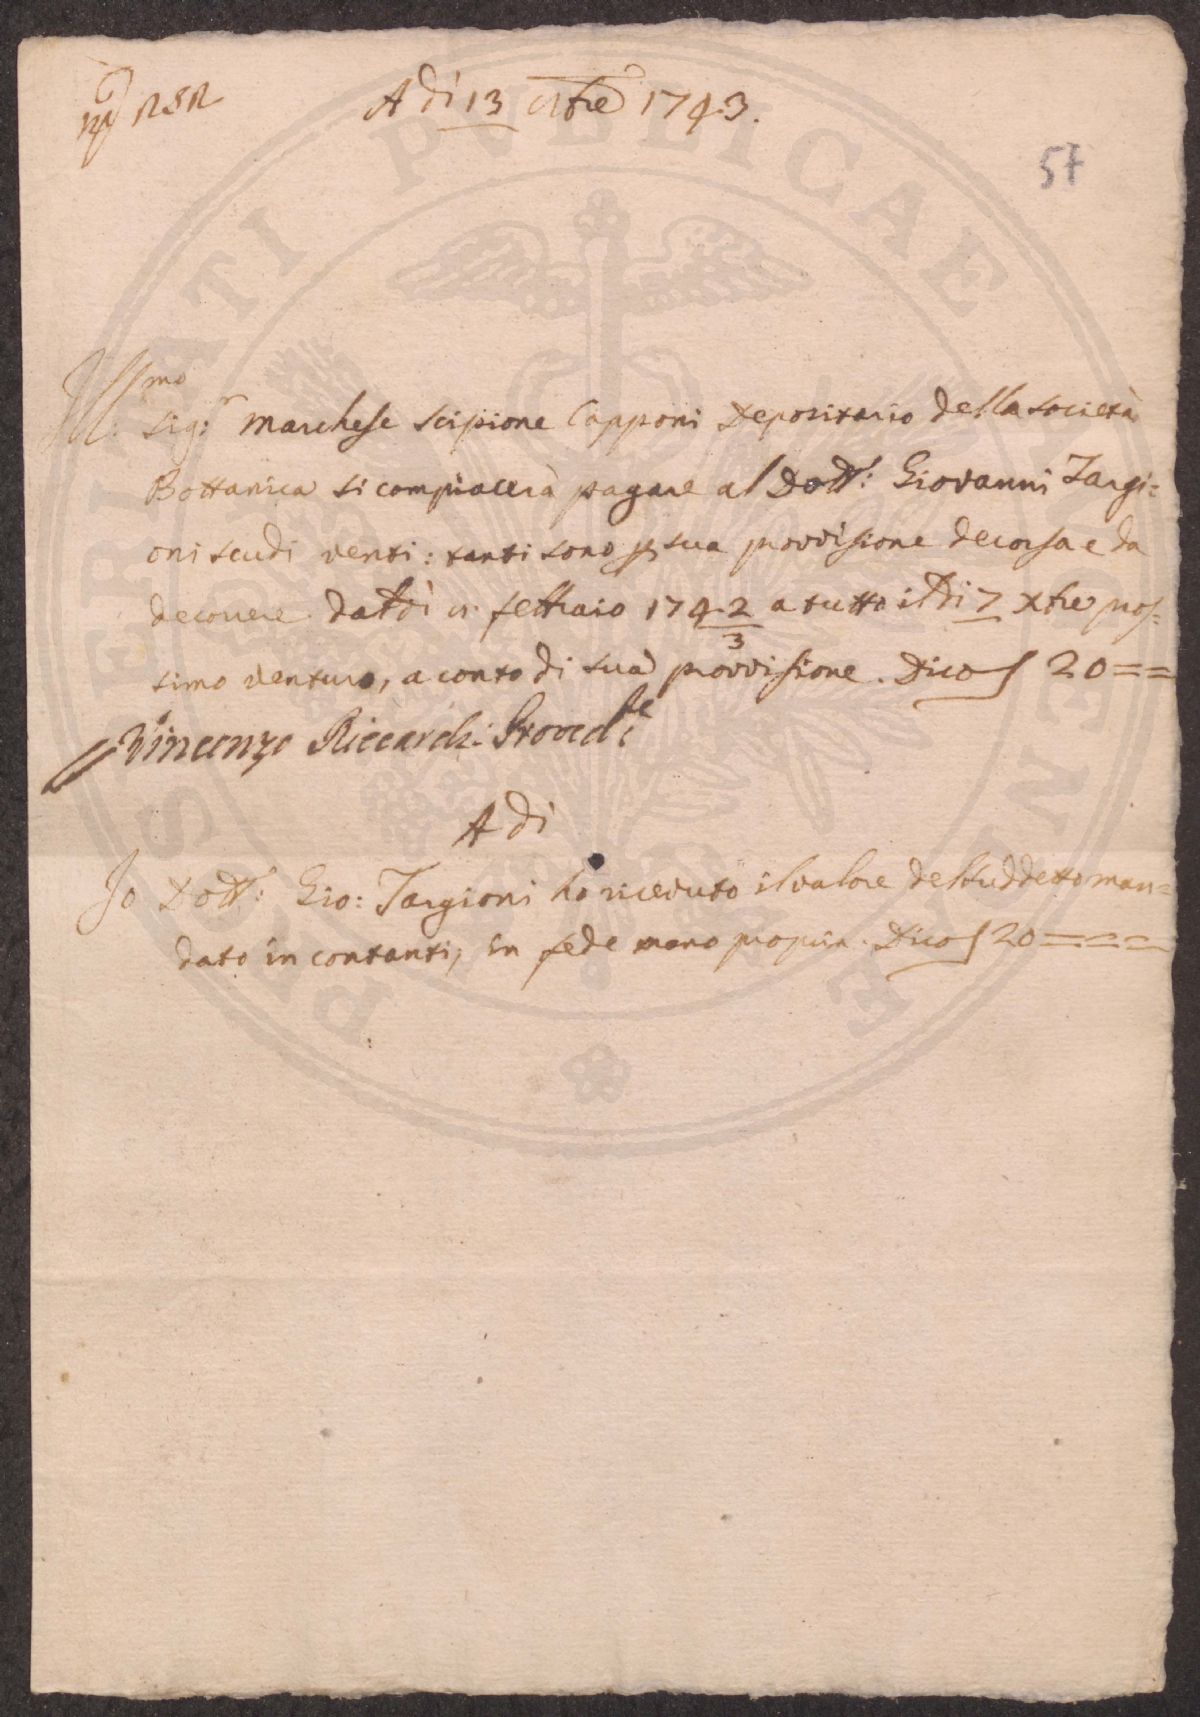 A dì 13 9bre 1743.
57
Ill:mo Sig:r Marchese Scipione Capponi Depositario della società
Bottanica si compiacerà pagare al Dott: Giovanni Targi=
oni scudi venti: tanti sono p sua provvisione decorsa e da
decorrere dal dì febbraio 1742/3 a tutto il dì 7 Xbre pros=
simo venturo, a conto di sua provvisione. Dico 20==
Vincenzo Riccardi Proved:re
A dì
Io Dott: Gio: Targioni hò ricevuto il valore del suddetto man=
dato in contanti, in fede mano propria. Dico 20====
PIETATI PVBLICAE